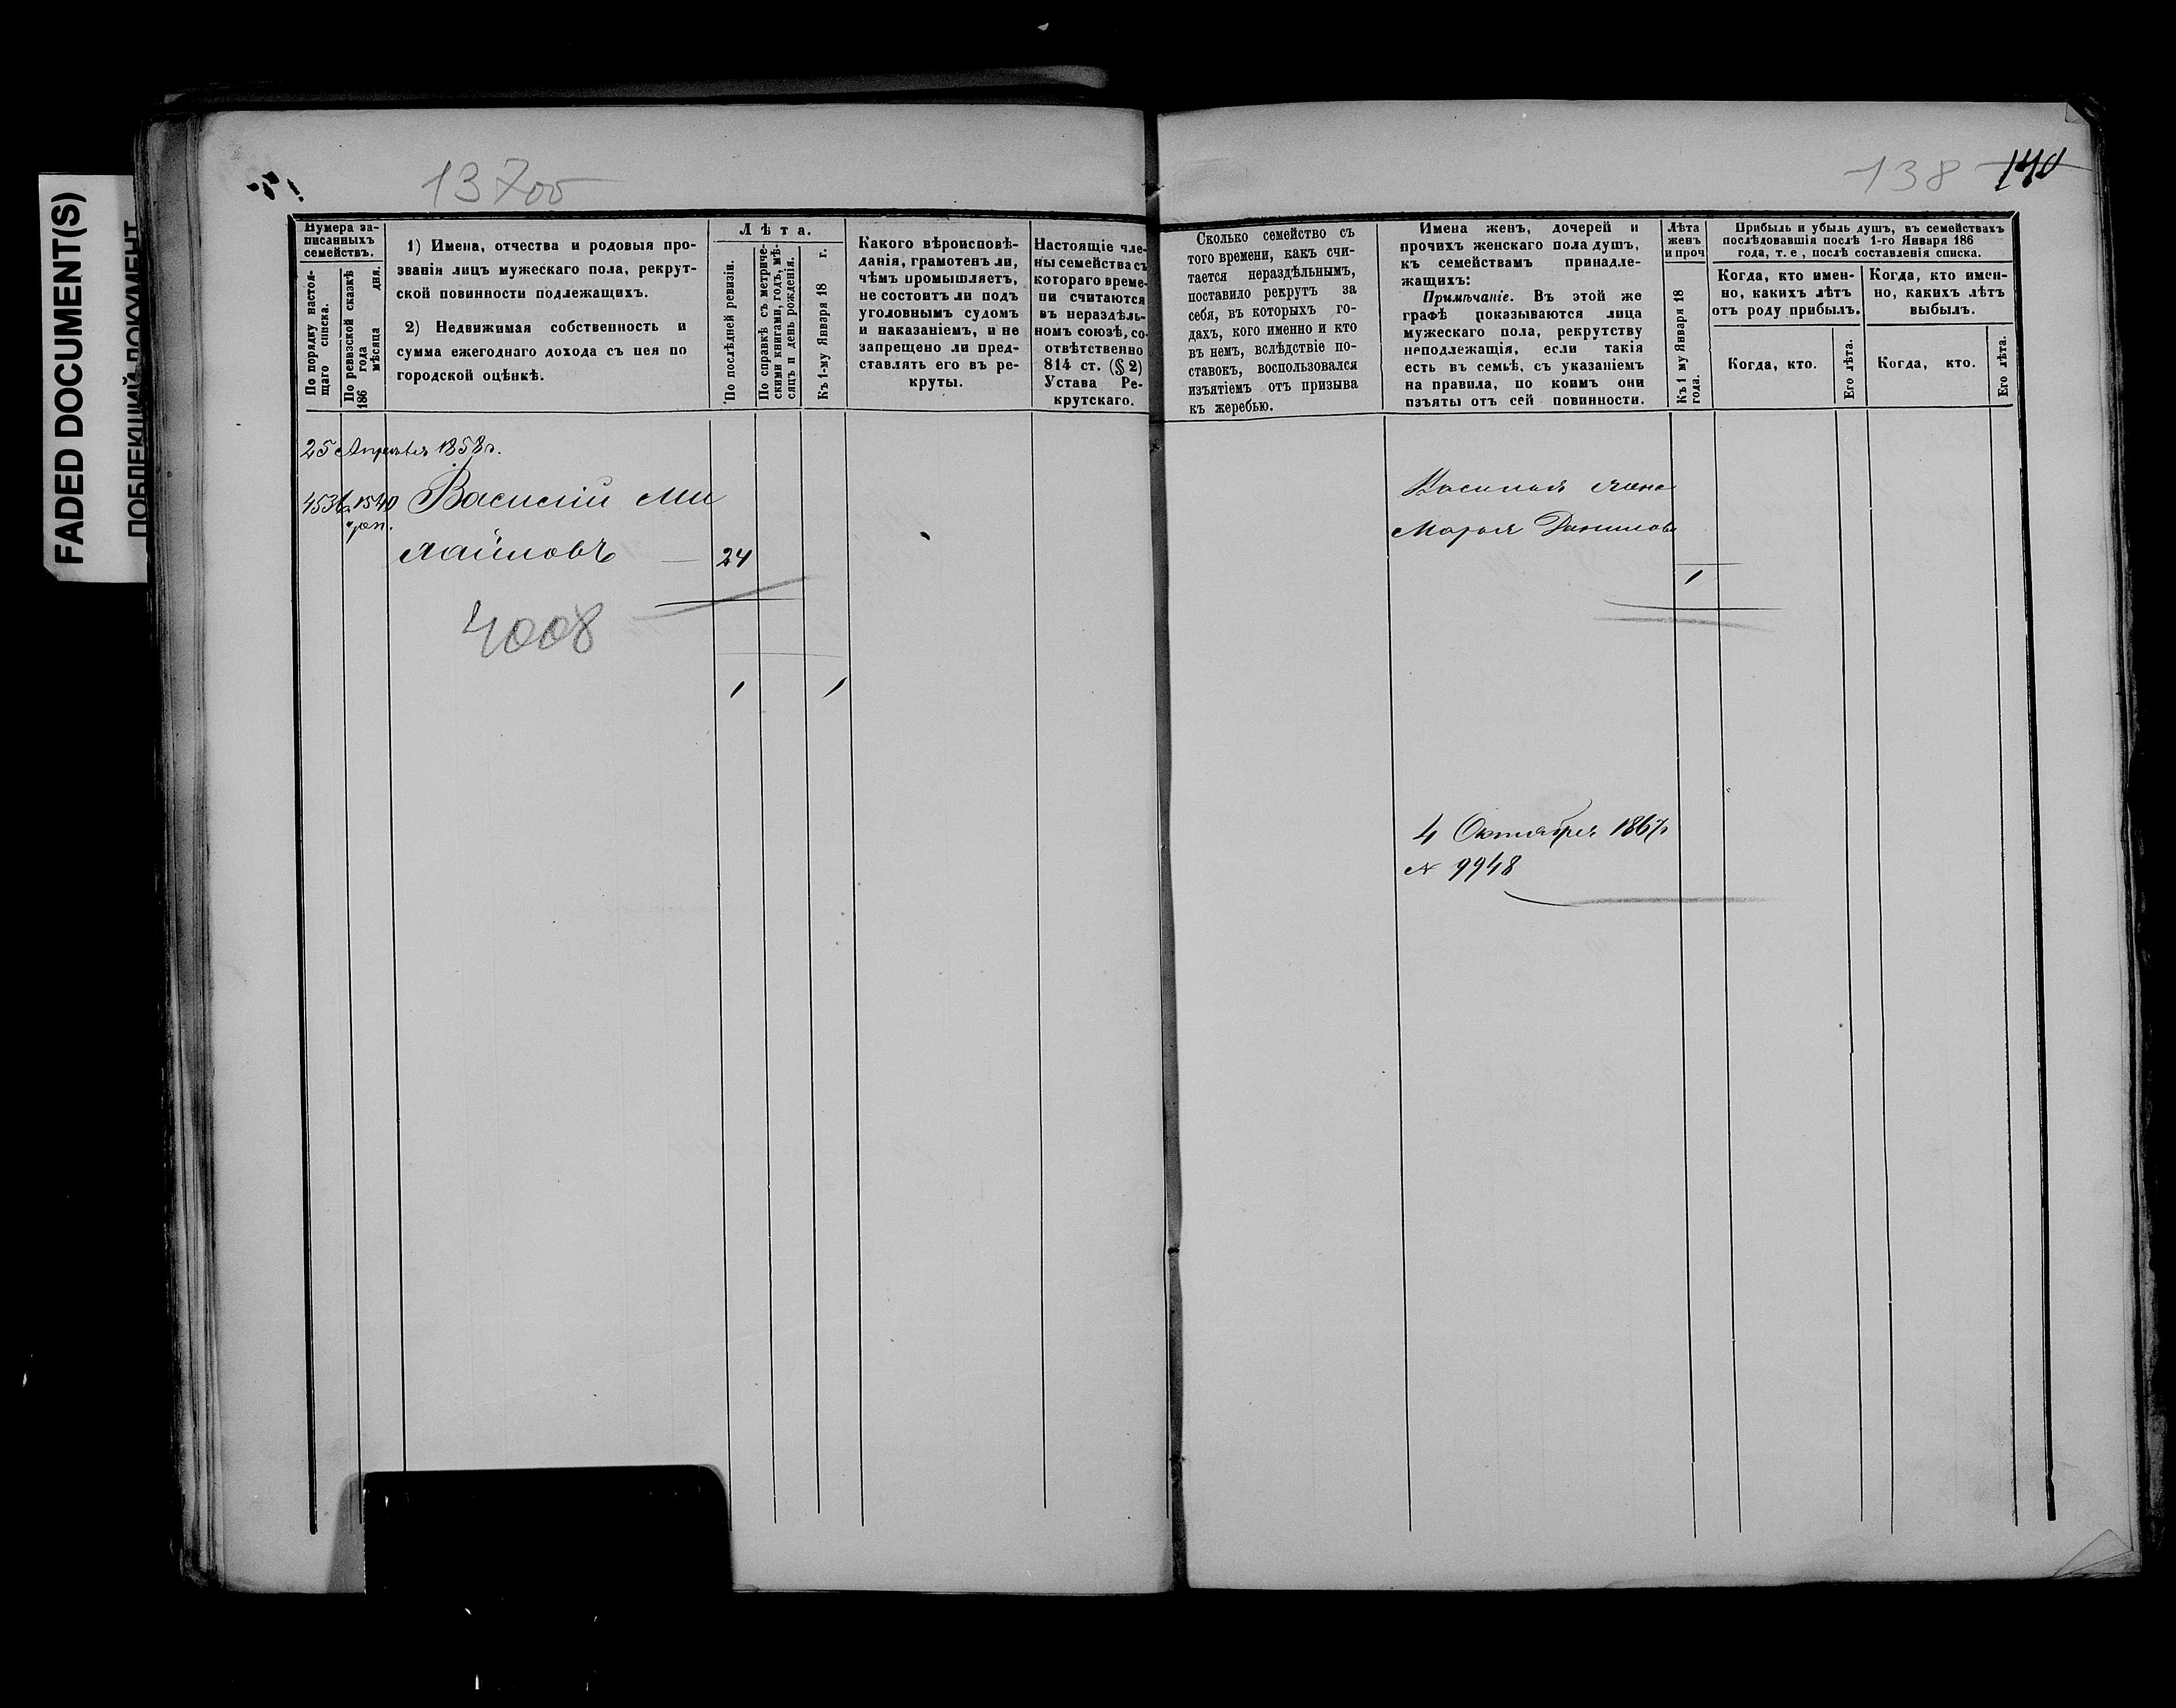 FADED DOCUMENT(S)
137 об
138
140
Нумера за-
писанныхъ
семействъ.
По порядку настоя-
щаго списка.
По ревизской сказкѣ
186 года
мѣсяца дня.
1) Имена, отчества и родовыя про-
званія лицъ мужескаго пола, рекрут-
ской повинности подлежащихъ.
2) Недвижимая собственность и
сумма ежегоднаго дохода съ нея по
городской оцѣнкѣ.
Лѣта.
По послѣдней ревизіи.
По справкѣ съ метриче-
скими книгами, годъ, мѣ-
сяцъ и день рожденія.
Къ 1-му Января 18 г.
Какого вѣроисповѣ-
данія, грамотенъ ли,
чѣмъ промышляетъ,
не состоитъ ли подъ
уголовнымъ судомъ
и наказаніемъ, и не
запрещено ли пред-
ставлять его въ ре-
круты.
Настоящіе чле-
ны семейства съ
котораго време-
ни считаются
въ нераздѣль-
номъ союзѣ, со-
отвѣтственно
814 ст. (§ 2)
Устава Ре-
крутскаго.
Сколько семейство съ
того времени, какъ счи-
тается нераздѣльнымъ,
поставило рекрутъ за
себя, въ которыхъ го-
дахъ, кого именно и кто
въ немъ, вслѣдствіе по-
ставокъ, воспользовался
изъятіемъ отъ призыва
къ жеребью.
Имена женъ, дочерей и
прочихъ женскаго пола душъ,
къ семействамъ принадле-
жащихъ:
Примѣчаніе. Въ этой же
графѣ показываются лица
мужескаго пола, рекрутству
неподлежащія, если такія
есть въ семьѣ, съ указаніемъ
на правила, по коимъ они
изъяты отъ сей повинности.
Лѣта
женъ
и проч
Къ 1 му Января 18
года.
Прибыль и убыль душъ, въ семействахъ
послѣдовавшія послѣ 1-го Января 186
года, т. е , послѣ составленія списка.
Когда, кто имен-
но, какихъ лѣтъ
отъ роду прибылъ.
Когда, кто имен-
но, какихъ лѣтъ
выбылъ.
Когда, кто.
Его лѣта.
Когда, кто.
Его лѣта.
25 Апрѣля 1858 г.
1540 Василій Ми
хайловъ — 24
4008
1 1
Василья жена
Марья Данилова
1
4 Октября 1867 г
№ 9948